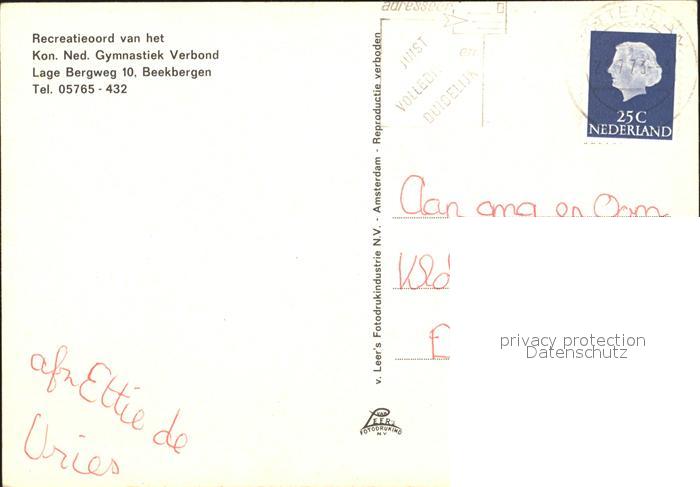 Recreatieoord van het
Kon. Ned. Gymnastiek Verbond
Lage Bergweg 10, Beekbergen
Tel. 05765 - 432
adresseer
JUIST
en
VOLLEDIG
DUIDELIJK
25C
NEDERLAND
v. Leer's Fotodrukindustrie N.V. - Amsterdam - Reproductie verboden
Aan oma en Oom
privacy protection
Datenschutz
afz Ettie de
Vries
VAN
LEER's
FOTODRUKIND
N.V.